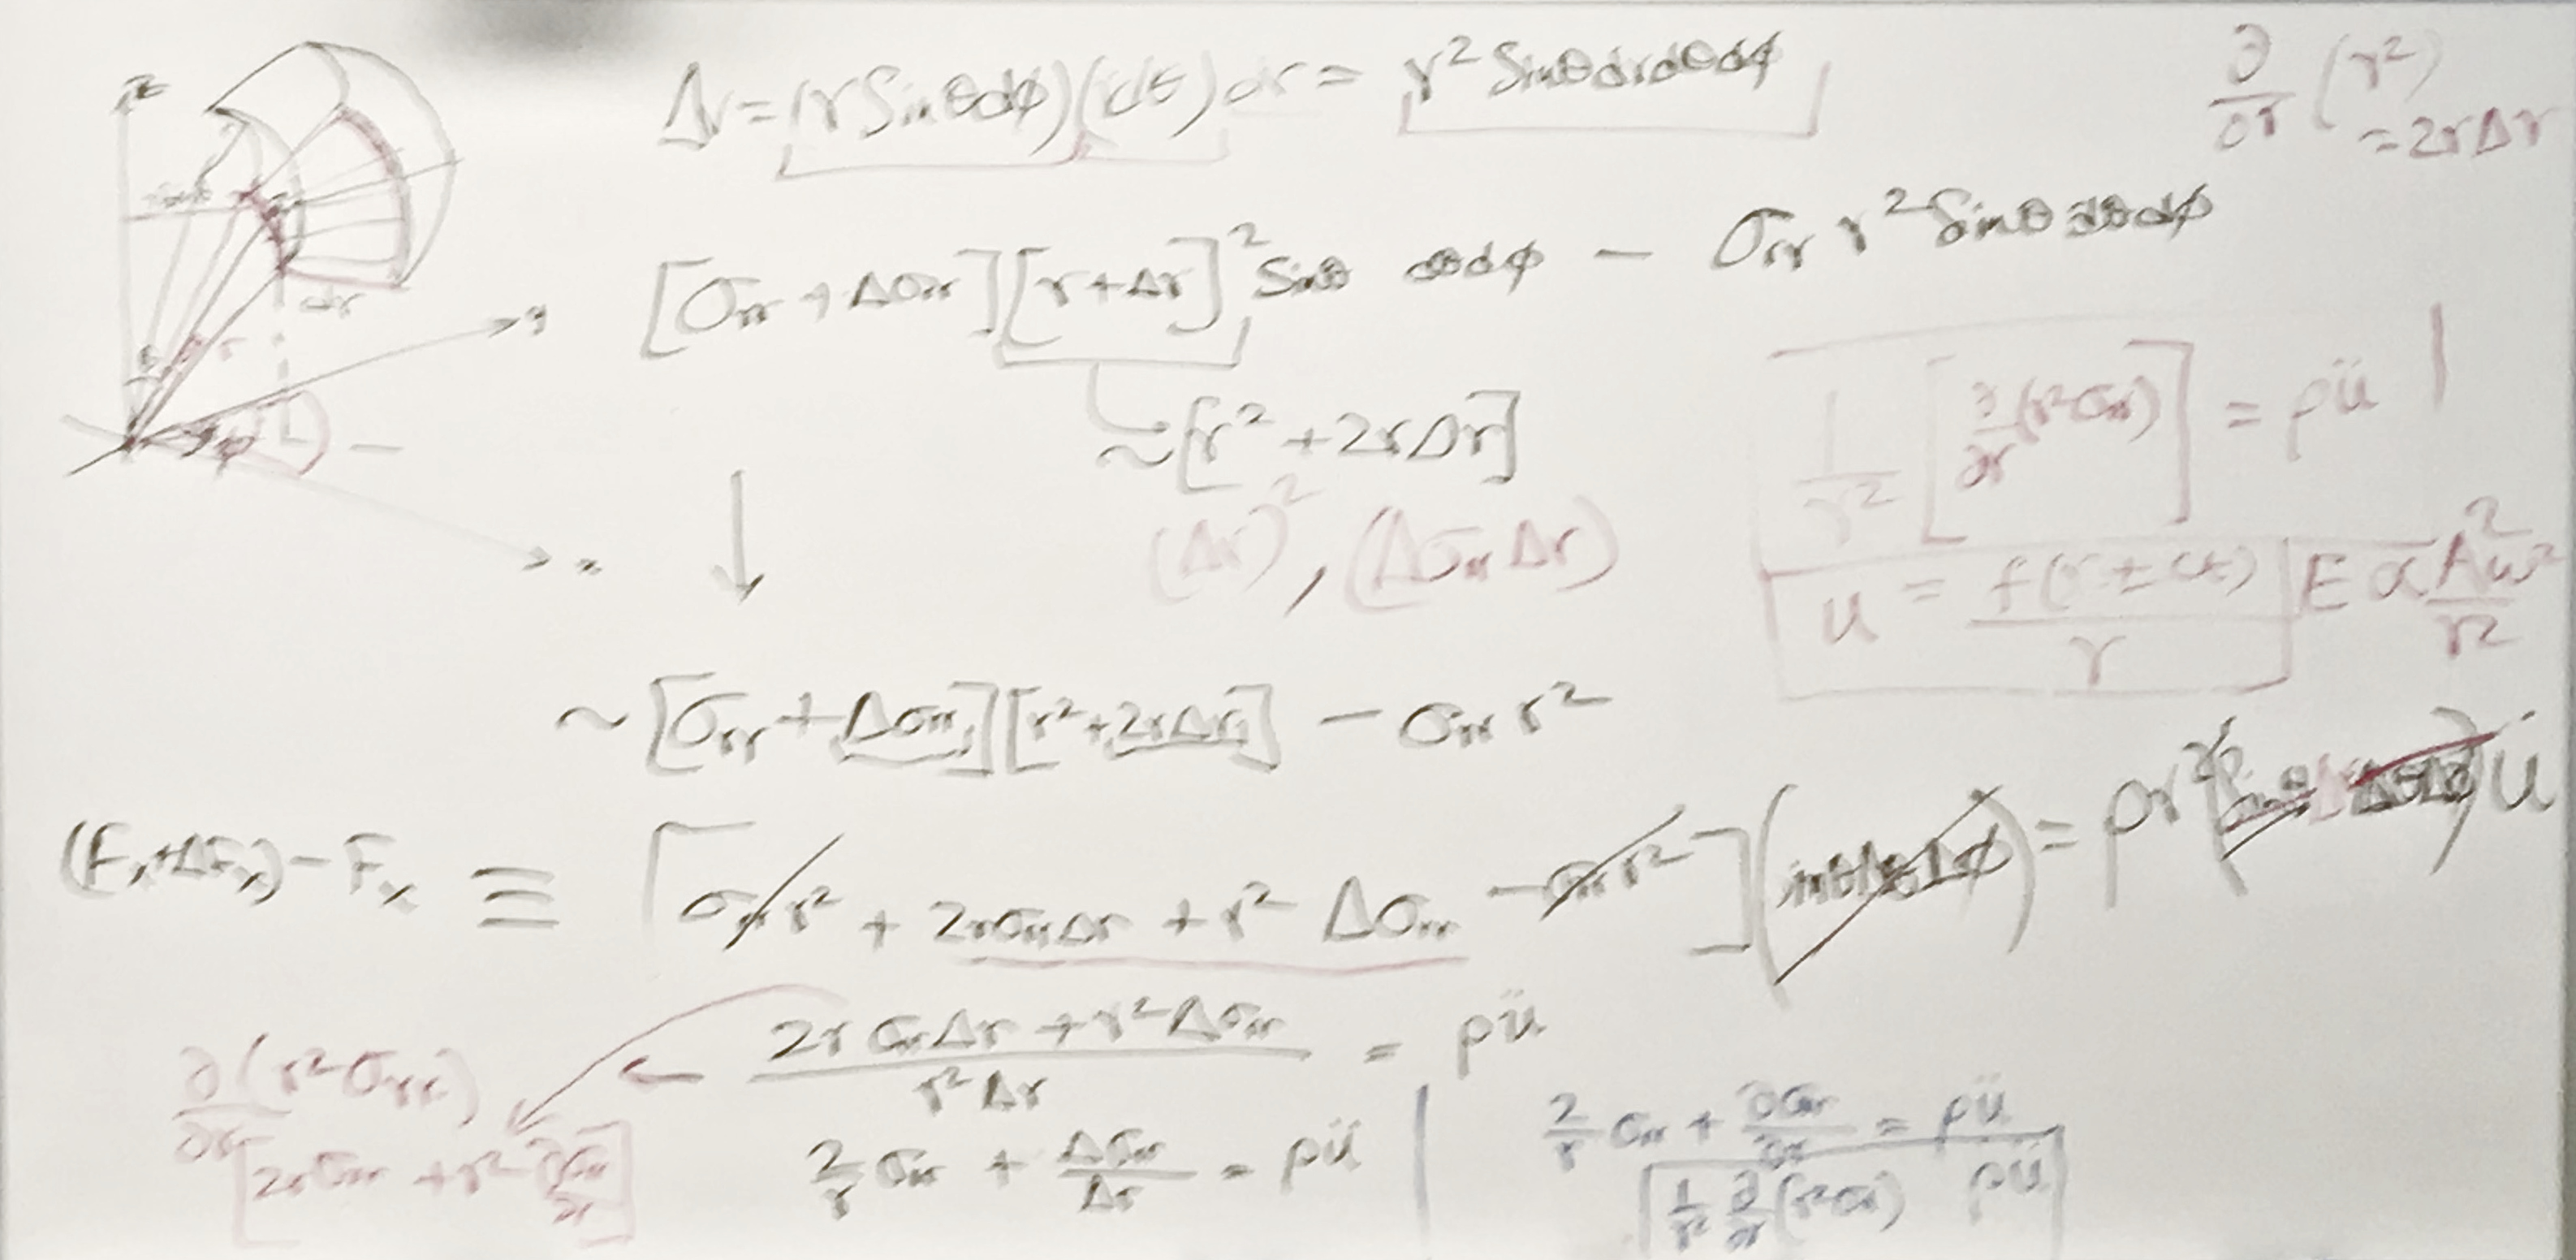 z
ΔV = (r Sinθdϕ)(rdθ)dr = r² Sinθdrdθdϕ
∂/∂r (r²)
= 2rΔr
[σrr + Δσrr][r+Δr]² Sinθ dθdϕ − σrr r² Sinθ dθdϕ
dr
y
θ
r
ϕ
x
~[r² + 2rΔr]
(Δr)², (Δσrr Δr)
1/r² [∂/∂r (r²σrr)] = ρü
u = f(r ± ct)/r
E α A²ω²/r²
~ [σrr + Δσrr][r²+2rΔr] − σrr r²
(Fx+ΔFx) − Fx ≡ [σrr r² + 2rσrrΔr + r² Δσrr − σrr r²](sinθΔθΔϕ) = ρr²(Sinθ Δr ΔθΔϕ)ü
(2rσrrΔr + r²Δσrr)/(r²Δr) = ρü
∂/∂r (r²σrr)
[2rσrr + r² ∂σrr/∂r]
2/r σrr + Δσrr/Δr = ρü
2/r σrr + ∂σrr/∂r = ρü
1/r² ∂/∂r (r²σrr) ρü